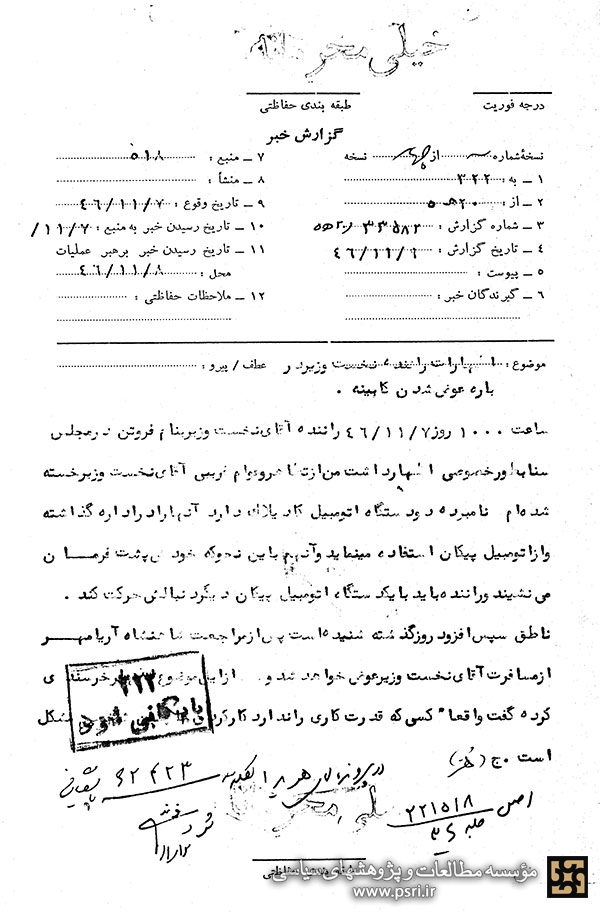 خیلی محرمانه
درجه فوریت
طبقه بندی حفاظتی
گزارش خبر
نسخهٔ شماره از چهار نسخه
۱ ـ به : ۳۲۲
۲ ـ از : ۲۰ ه‍ ۵
۳ ـ شماره گزارش : ۳۳۵۸۲ / ۲۰ ه‍ ۵
۴ ـ تاریخ گزارش : ۴۶/۱۱/۹
۵ ـ پیوست :
۶ ـ گیرندگان خبر :
۷ ـ منبع : ۵۱۸
۸ ـ منشأ :
۹ ـ تاریخ وقوع : ۴۶/۱۱/۷
۱۰ ـ تاریخ رسیدن خبر به منبع : ۱۱/۷/
۱۱ ـ تاریخ رسیدن خبر برهبر عملیات
محل : ۴۶/۱۱/۸
۱۲ ـ ملاحظات حفاظتی :
موضوع : اظهارات راننده نخست وزیر در عطف / پیرو :
باره عوض شدن کابینه .
ساعت ۱۰۰۰ روز ۴۶/۱۱/۷ راننده آقای نخست وزیر بنام فروتن در مجلس
سنا بطور خصوصی اظهار داشت من از تظاهر و عوام فریبی آقای نخست وزیر خسته
شده‌ام نامبرده دو دستگاه اتومبیل کادیلاک دارد آنها را در اداره گذاشته
و از اتومبیل پیکان استفاده مینماید و آنهم باین نحو که خودش پشت فرمان
می نشیند و راننده باید با یک دستگاه اتومبیل پیکان دیگر دنبالش حرکت کند .
ناطق سپس افزود روز گذشته شنیده است پس از مراجعت شاهنشاه آریامهر
از مسافرت آقای نخست وزیر عوض خواهد شد و از این موضوع خرسندی
کرده گفت واقعا" کسی که قدرت کاری را ندارد کار کردن مشکل
است . ج (هنر)
۳۲۲
بایگانی شود
در پرونده
۶۲۴۲۳
اصل ۲۲۱۵۱۸
خیلی محرمانه
طبقه بندی حفاظتی
مؤسسه مطالعات و پژوهشهای سیاسی
www.psri.ir